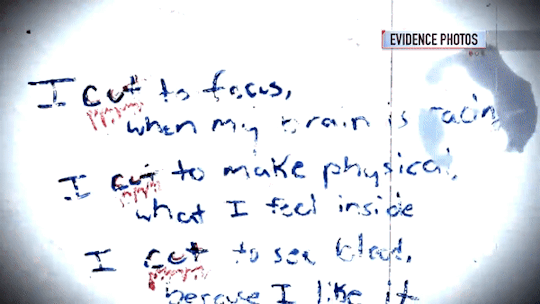 EVIDENCE PHOTOS
I cut to focus,
when my brain is racing
I cut to make physical,
what I feel inside
I cut to see blood,
because I like it